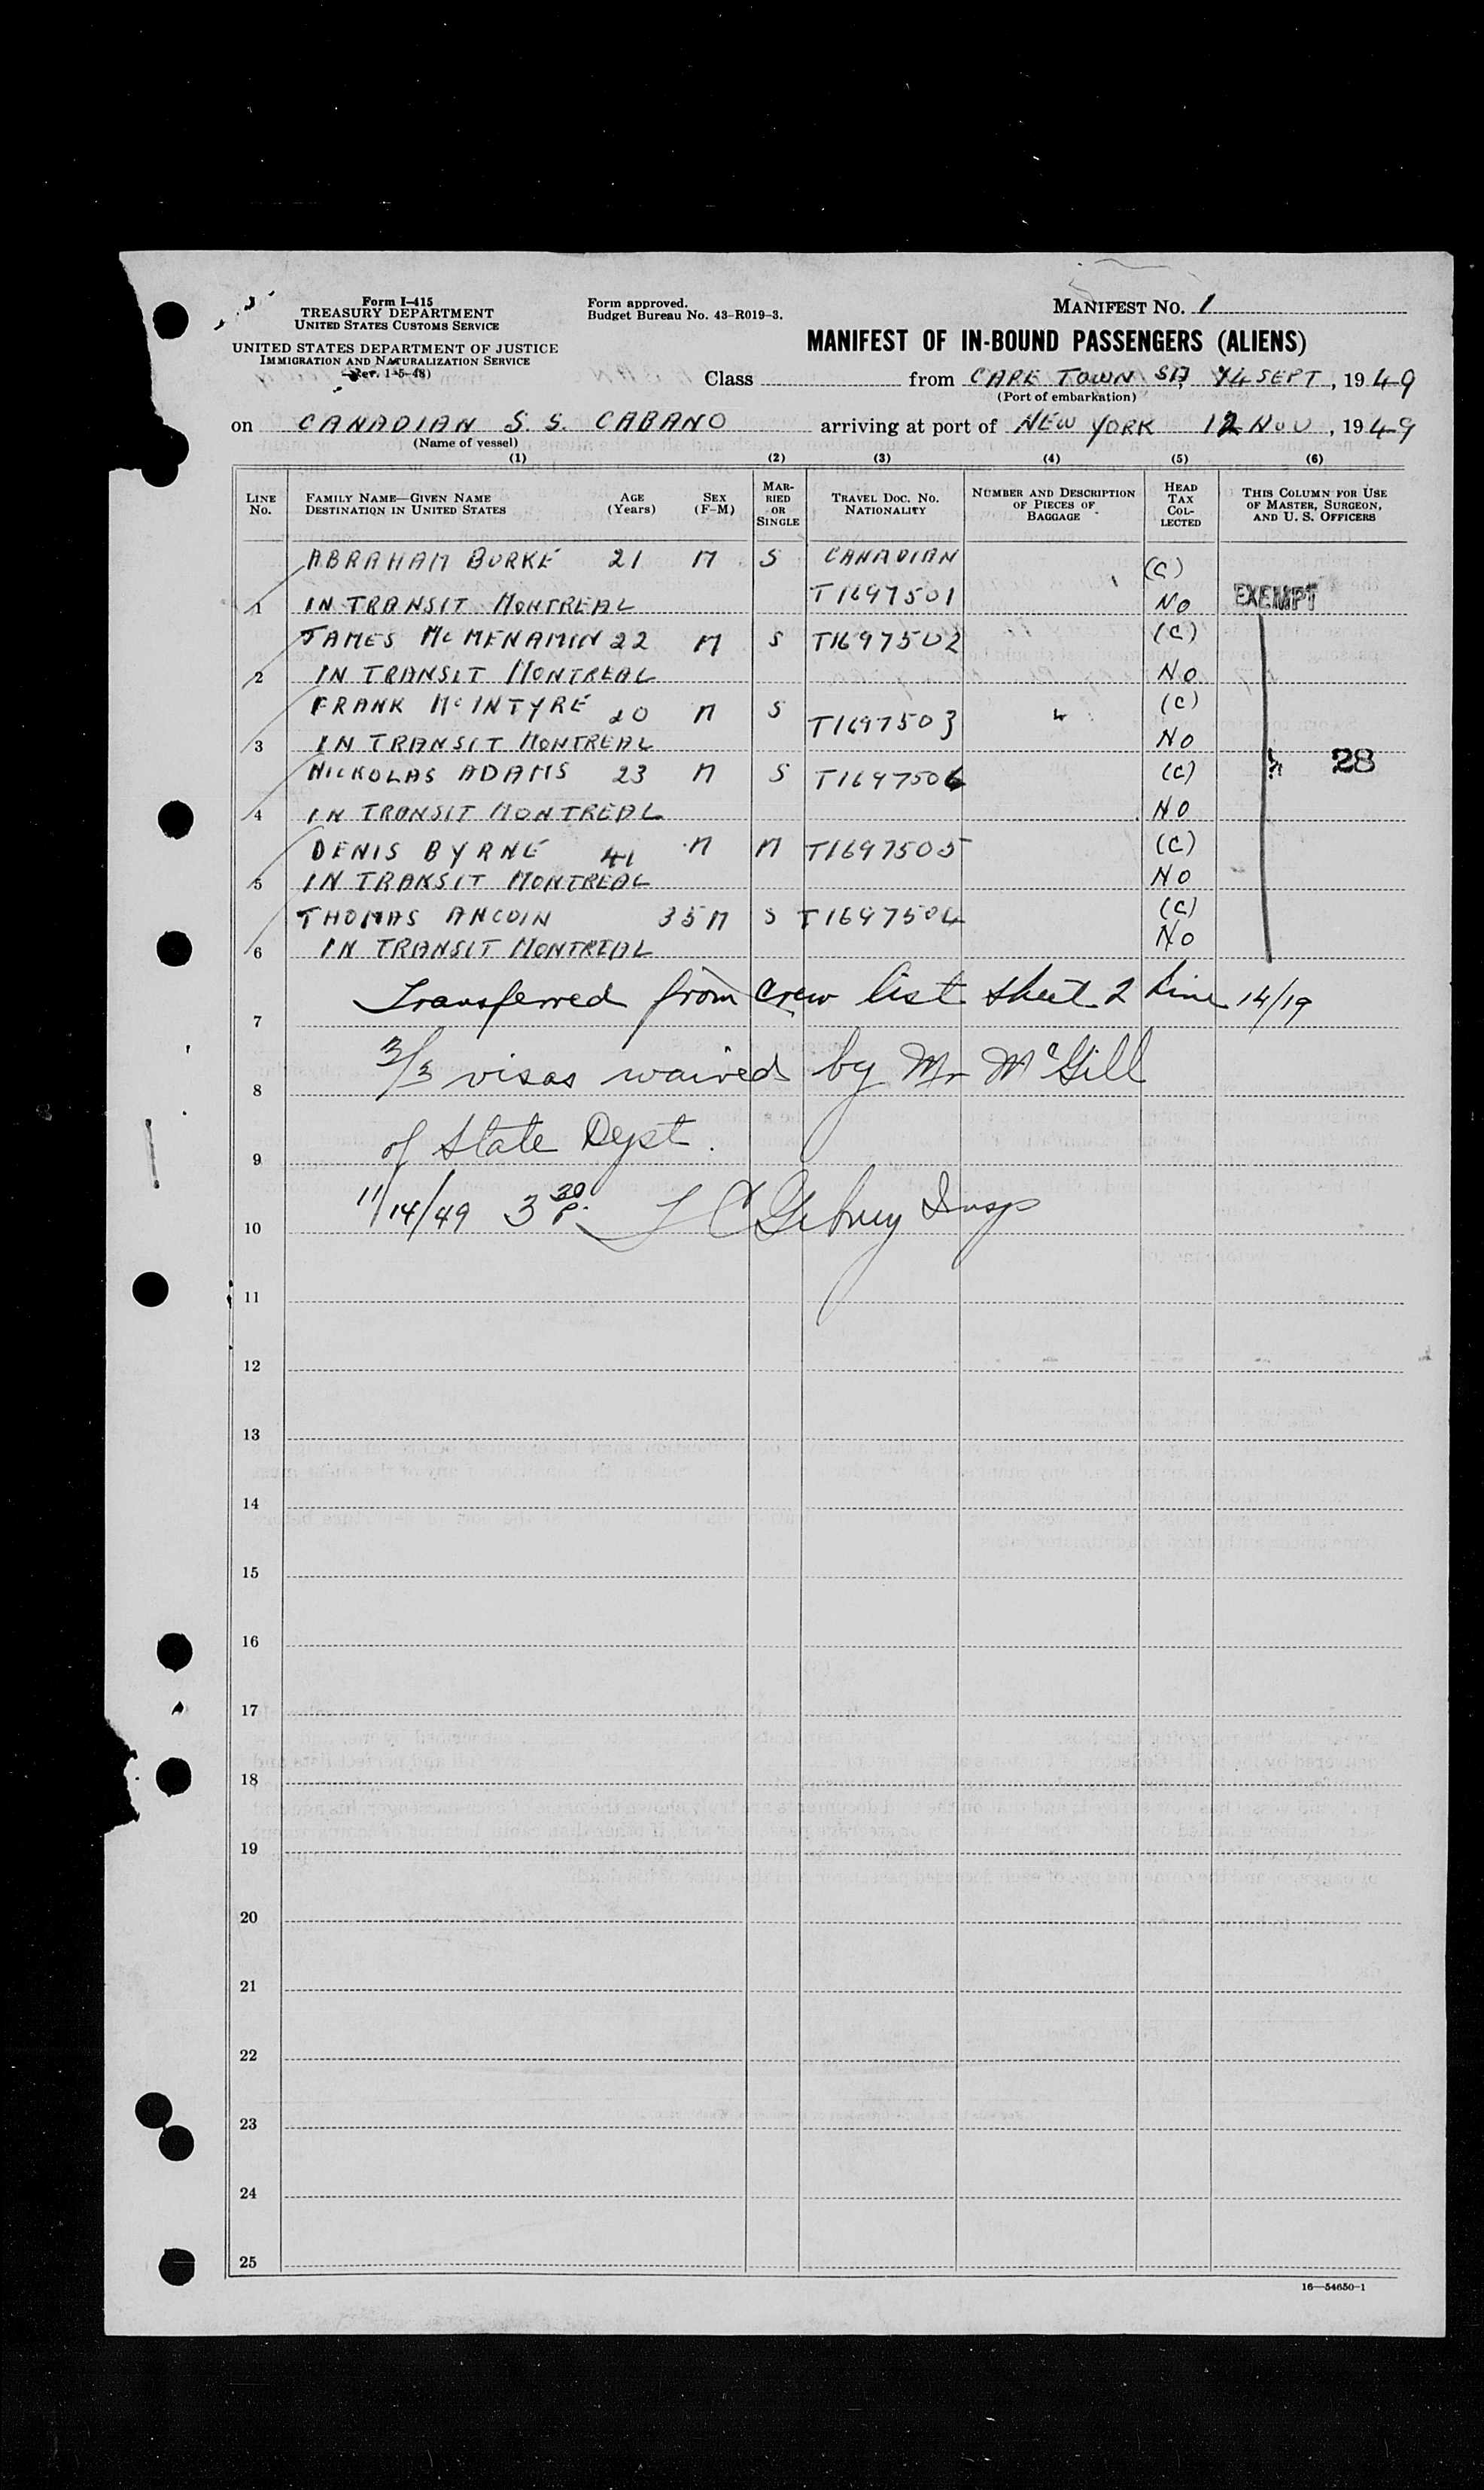 Form I-415
TREASURY DEPARTMENT
UNITED STATES CUSTOMS SERVICE
UNITED STATES DEPARTMENT OF JUSTICE
IMMIGRATION AND NATURALIZATION SERVICE
(Rev. 1-5-48)
Form approved.
Budget Bureau No. 43-R019-3.
MANIFEST NO. 1
MANIFEST OF IN-BOUND PASSENGERS (ALIENS)
Class from CAPE TOWN SA, 14 SEPT, 1949
(Port of embarkation)
on CANADIAN S. S. CABANO arriving at port of NEW YORK 12 NOV, 1949
(Name of vessel)
(1) (2) (3) (4) (5) (6)
LINE No. FAMILY NAME—GIVEN NAME DESTINATION IN UNITED STATES AGE (Years) SEX (F-M) MARRIED OR SINGLE TRAVEL DOC. NO. NATIONALITY NUMBER AND DESCRIPTION OF PIECES OF BAGGAGE HEAD TAX COLLECTED THIS COLUMN FOR USE OF MASTER, SURGEON, AND U. S. OFFICERS
ABRAHAM BURKE 21 M S CANADIAN (C)
1 IN TRANSIT MONTREAL T1697501 NO EXEMPT
JAMES McMENAMIN 22 M S T1697502 (C)
2 IN TRANSIT MONTREAL NO
FRANK McINTYRE 20 M S T1697503 (C)
3 IN TRANSIT MONTREAL NO
NICKOLAS ADAMS 23 M S T1697506 (C) 28
4 IN TRANSIT MONTREAL NO
DENIS BYRNE 41 M M T1697505 (C)
5 IN TRANSIT MONTREAL NO
THOMAS ANCOIN 35 M S T1697504 (C)
6 IN TRANSIT MONTREAL NO
7 Transferred from crew list sheet 2 line 14/19
8 3/3 visas waived by Mr McGill
9 of State Dept.
10 11/14/49 3 30 P. Insp
11
12
13
14
15
16
17
18
19
20
21
22
23
24
25
16—54650-1